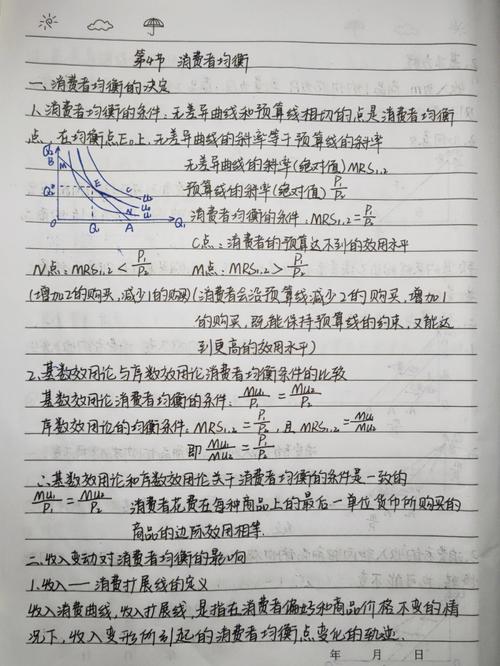 第4节 消费者均衡
一、消费者均衡的决定
1、消费者均衡的条件：无差异曲线和预算线相切的点是消费者均衡
点，在均衡点E。上，无差异曲线的斜率等于预算线的斜率
无差异曲线的斜率(绝对值)MRS₁,₂
预算线的斜率(绝对值) P₁/P₂
消费者均衡的条件：MRS₁,₂ = P₁/P₂
C点：消费者的预算达不到的效用水平
Q₂
B
M
Q₂⁰
E
C
U₃
U₂
U₁
N
O
Q₁
A
Q₁
N点：MRS₁,₂ < P₁/P₂ M点：MRS₁,₂ > P₁/P₂
(增加2的购买，减少1的购买)(消费者会沿预算线减少2的购买，增加1
的购买，既能保持预算线的约束，又能达
到更高的效用水平)
2、基数效用论与序数效用论消费者均衡条件的比较
基数效用论消费者均衡的条件：MU₁/P₁ = MU₂/P₂
序数效用论的均衡条件：MRS₁,₂ = P₁/P₂，且MRS₁,₂ = MU₁/MU₂
即 MU₁/MU₂ = P₁/P₂
∴基数效用论和序数效用论关于消费者均衡的条件是一致的
MU₁/P₁ = MU₂/P₂ 消费者花费在每种商品上的最后一单位货币所购买的
商品的边际效用相等.
二、收入变动对消费者均衡的影响
1、收入——消费扩展线的定义
收入消费曲线，收入扩展线，是指在消费者偏好和商品价格不变的情
况下，收入变形所引起的消费者均衡点变化的轨迹.
年 月 日